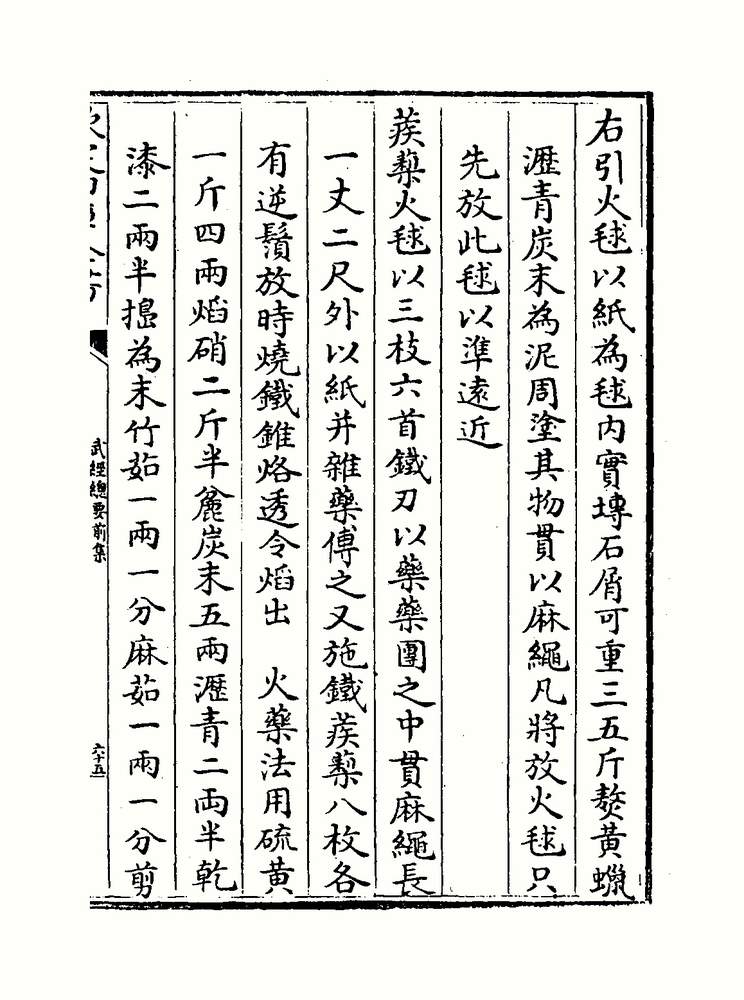 右引火毬以紙為毬内實塼石屑可重三五斤熬黃蠟
瀝青炭末為泥周塗其物貫以麻繩凡將放火毬只
先放此毬以準遠近
蒺藜火毬以三枝六首鐵刃以藥藥團之中貫麻繩長
一丈二尺外以紙并雜藥傅之又施鐵蒺藜八枚各
有逆鬚放時燒鐵錐烙透令焰出　火藥法用硫黃
一斤四兩焰硝二斤半麄炭末五兩瀝青二両半乾
漆二兩半搗為末竹茹一兩一分麻茹一兩一分剪
武經總要前集
六十五